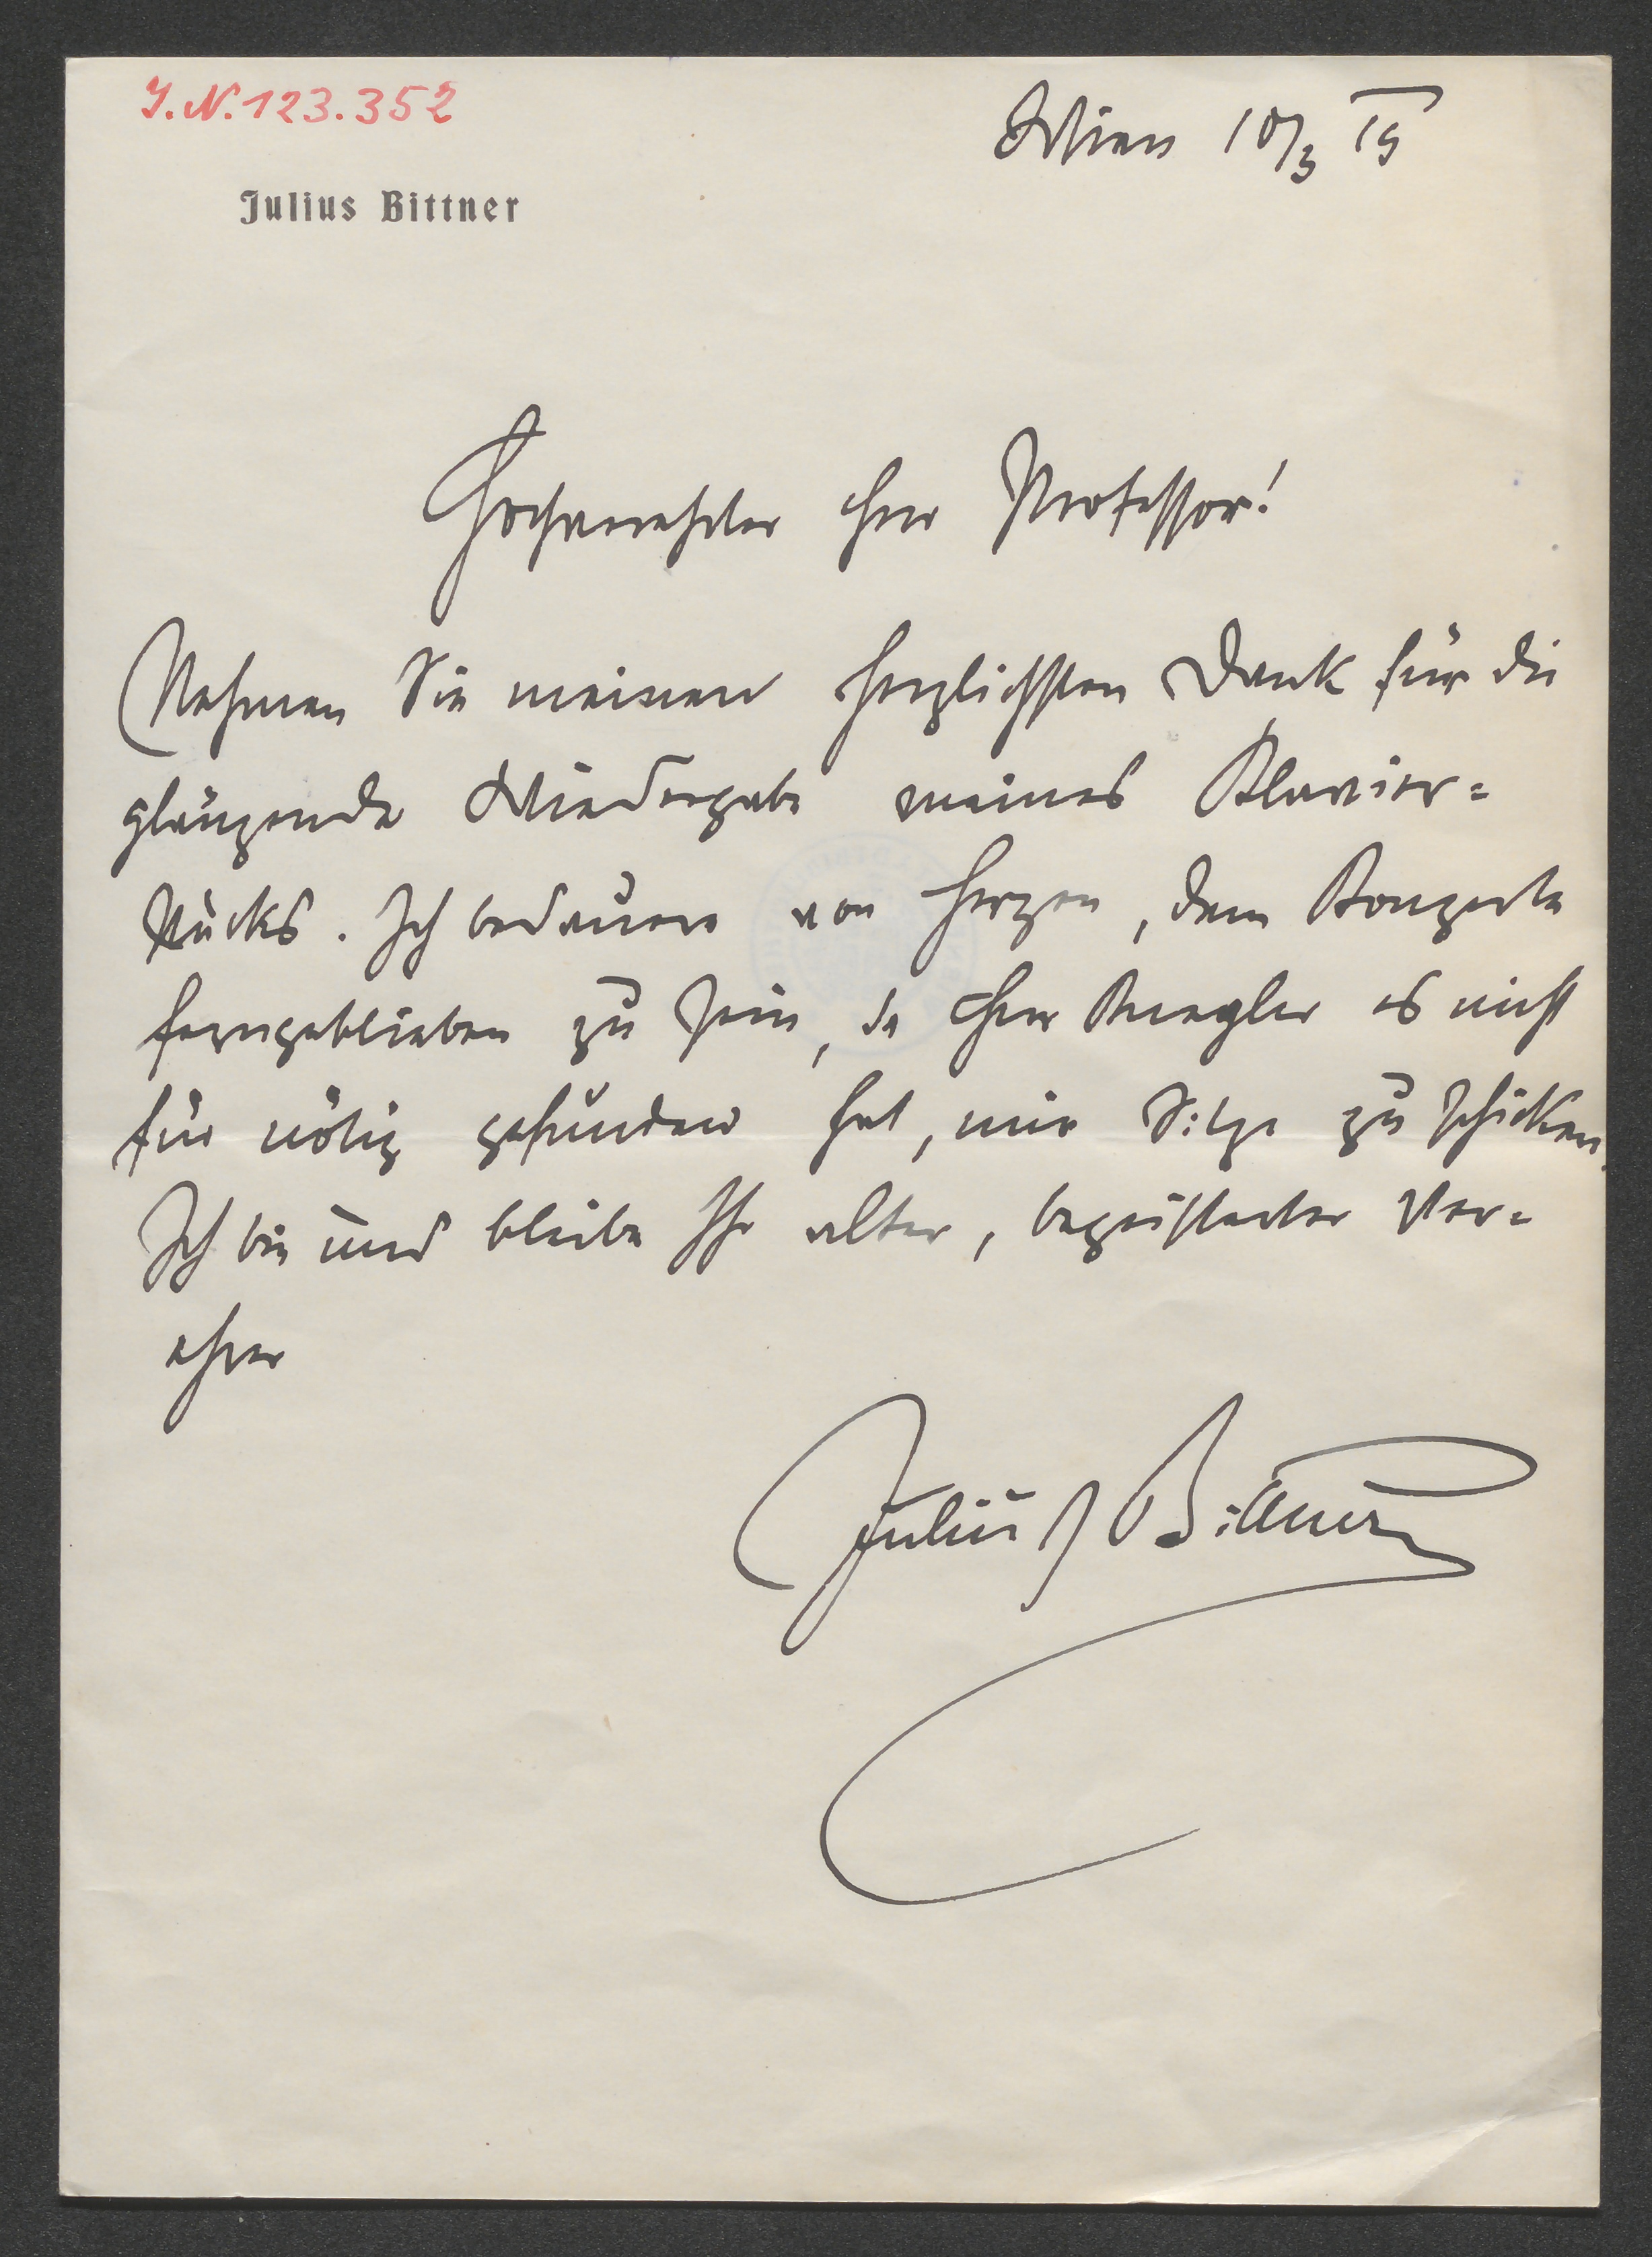 J.N. 123.352
Wien 10/3 19
Julius Bittner
Hochverehrter Herr Professor!
Nehmen Sie meinen herzlichsten Dank für die
glänzende Wiedergabe meines Klavier=
stücks. Ich bedauere von Herzen, dem Konzerte
ferngeblieben zu sein, da Herr Kugler es nicht
für nötig gefunden hat, mir Sitze zu schicken.
Ich bin und bleibe Ihr alter, begeisterter Ver=
ehrer
Julius Bittner